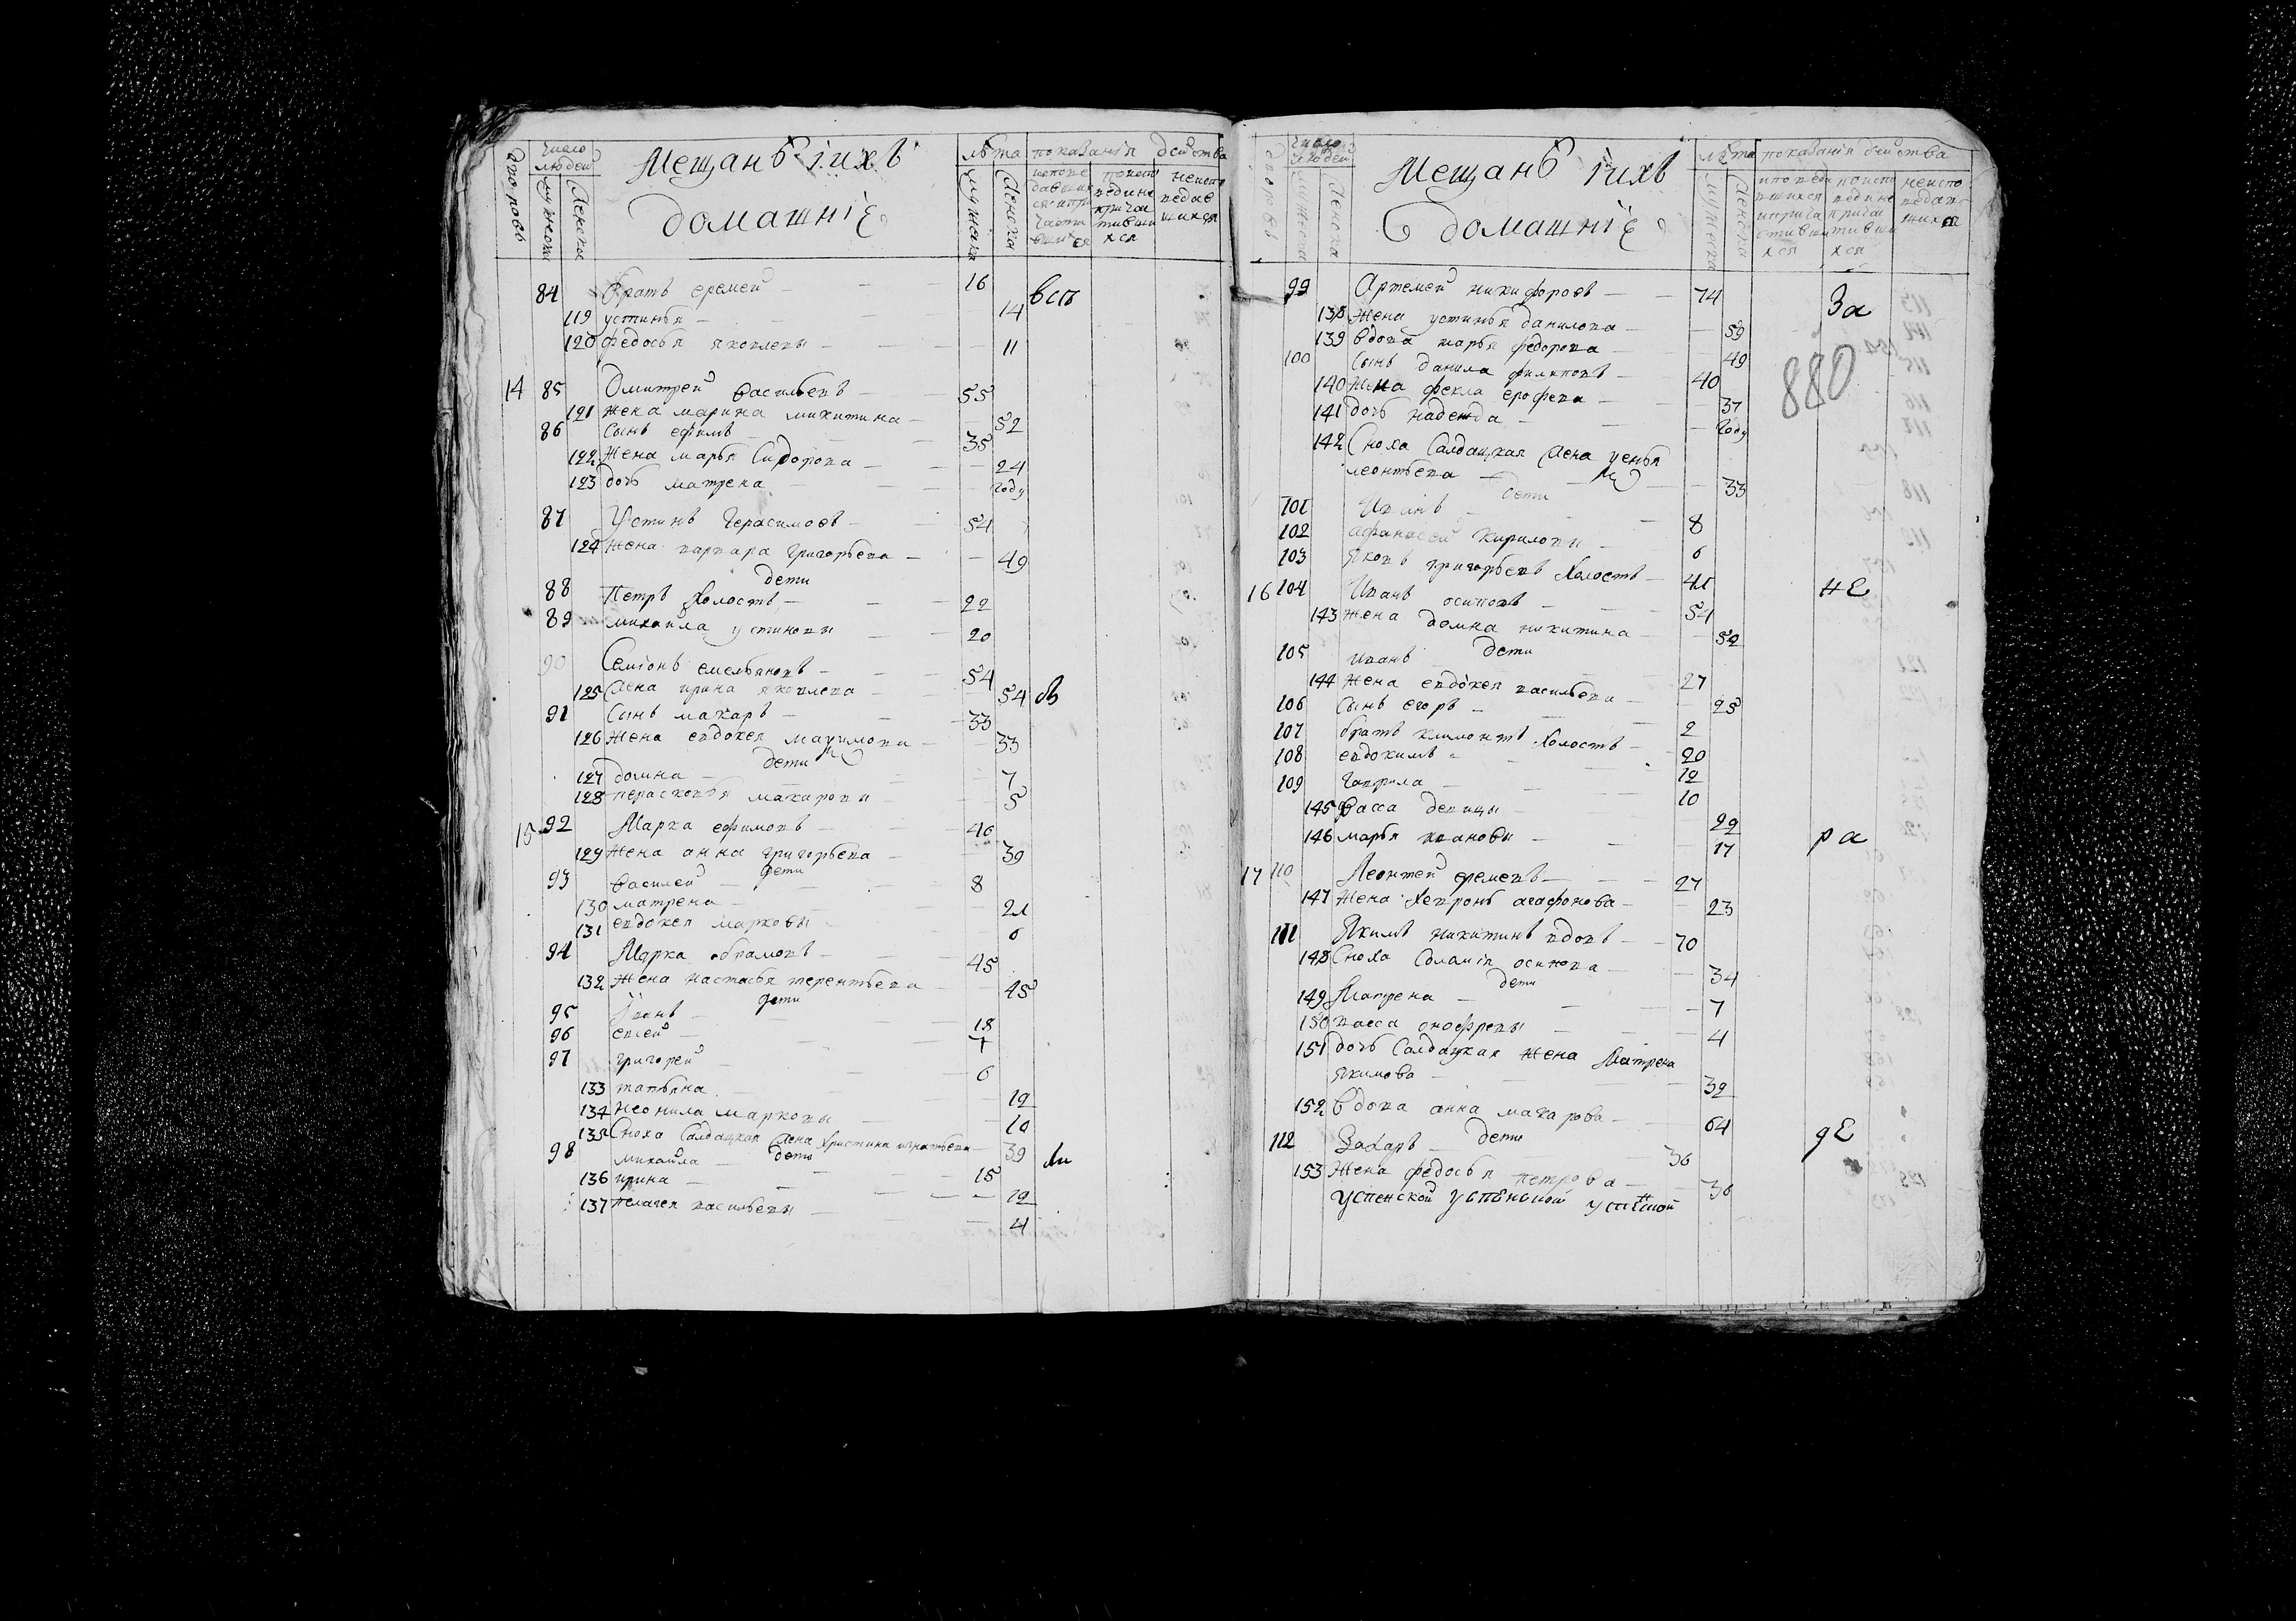 дворовъ
число людей
мужска
женска
Мещанъ iихъ
домашнiе
лѣта
мужска
женска
показанiя действа
84 братъ еремей — 16
всъ
119 устинья — 14
120 федосья яковлевы — 11
14 85 Дмитрей васильевъ — 55
121 жена марина микитина — 52
86 сынъ ефимъ — 35
122 жена марья Сидорова — 24
123 дочь матрена — году
87 Устинъ Герасимовъ — 54
124 жена варвара григорьева — 49
дети
88 Петръ холостъ — 22
89 михаила устиновы — 20
90 Семiонъ емельяновъ — 54
125 жена ирина яковлева — 54
91 Сынъ макаръ — 33
126 жена евдокея маѯимова — 33
дети
127 домна — 7
128 пераскевья макаровы — 5
15 92 Марка ефимовъ — 40
129 жена анна григорьева — 39
дети
93 василей — 8
130 матрена — 21
131 евдокея марковы 6
94 Марка абрамовъ — 45
132 жена настасья терентьева — 45
дети
95 Iванъ — 18
96 евсей — 7
97 григорей — 6
133 татьяна — 12
134 неонила марковы 10
135 Сноха Салдацкая жена христина игнатьева — 39
дети
98 михайла — 15
ли
136 ирина — 12
137 пелагея васильевы — 4
дворовъ
число людей
мужска
женска
Мещанъ iихъ
домашнiе
лѣта
мужска
женска
показанiя действа
99 Артемей никифоровъ — 74
За
138 жена устинья данилова — 59
139 вдова марья федорова — 49
880
100 Сынъ данила филиповъ — 40
140 жена фекла ерофева — 37
141 дочь надежда — году
142 Сноха Салдацкая жена
леонтьева — 33
дети
101 Иванъ — 8
102 афанасей кириловы — 6
103 яковъ григорьевъ холостъ — 41
16 104 Иванъ осиповъ — 54
НЕ
143 жена домна никитина — 52
дети
105 иванъ — 27
144 жена евдокея васильева — 25
106 Сынъ егоръ — 2
107 братъ климонтъ холостъ — 20
108 евдокимъ — 12
109 гаврила — 10
145 васса девицы — 22
146 марья ивановы — 17
ра
17 110 Леонтей еремевъ — 27
147 жена хевронь агафонова — 23
111 Якимъ никитинъ вдовъ — 70
148 Сноха Соломiя осипова — 34
дети
149 Матрена — 7
150 васса онофревы — 4
151 дочь Салдацкая жена Матрена
якимова — 32
152 вдова анна макарова — 64
дети
112 Захаръ — 36
дЕ
153 жена федосья петрова — 36
успенской успенской